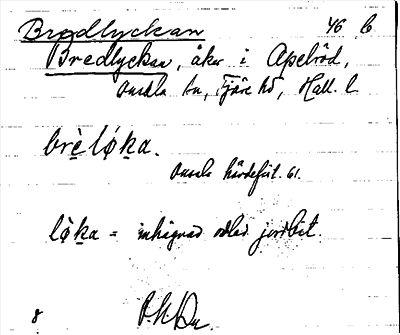 Bredlyckan 46 b
Bredlyckan, åker i Apelröd,
Onsala sn, Fjäre hd, Hall. l.
brè lǫ́ka.
Onsala härdefört. 61.
lǫ̀ka = inhägnad odlad jordbit.
8